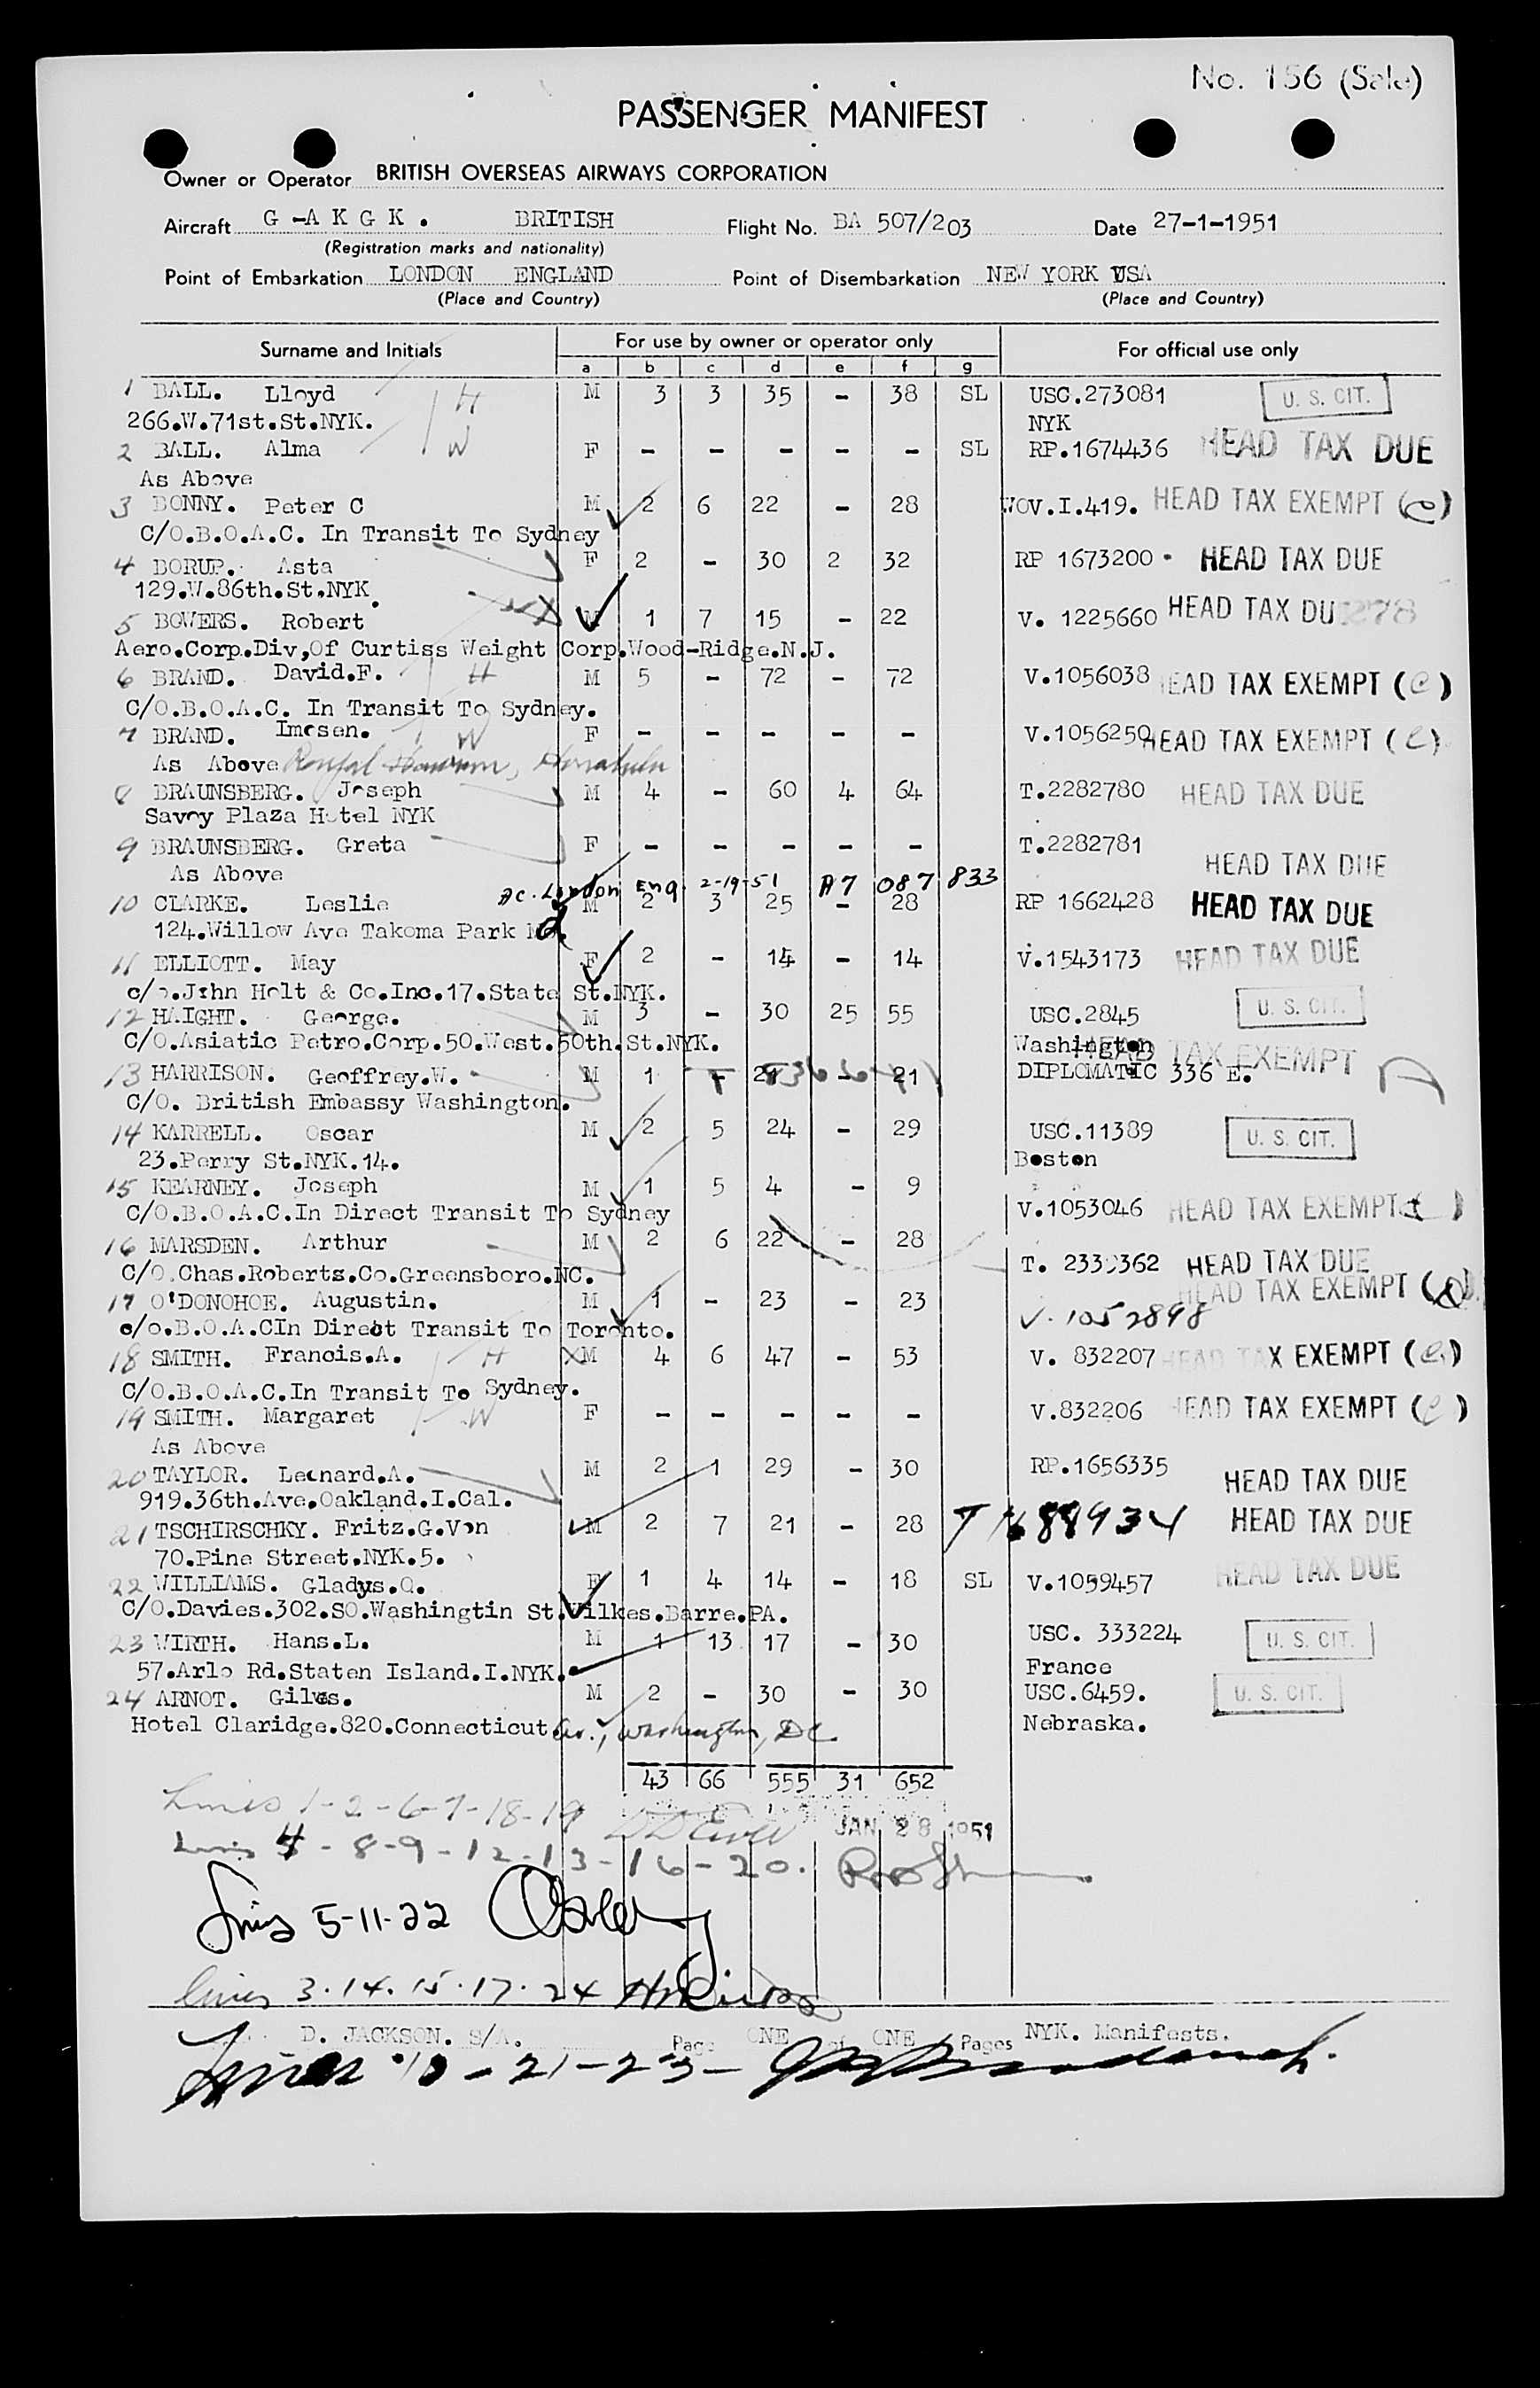 No. 156 (Sale)
PASSENGER MANIFEST
Owner or Operator BRITISH OVERSEAS AIRWAYS CORPORATION
Aircraft G -A K G K . BRITISH Flight No. BA 507/203 Date 27-1-1951
(Registration marks and nationality)
Point of Embarkation LONDON ENGLAND Point of Disembarkation NEW YORK USA
(Place and Country) (Place and Country)
Surname and Initials For use by owner or operator only For official use only
a b c d e f g
1 BALL. Lloyd H M 3 3 35 - 38 SL USC.273081 U. S. CIT.
266.W.71st.St.NYK. NYK
2 BALL. Alma W F - - - - - SL RP.1674436 HEAD TAX DUE
As Above
3 BONNY. Peter C M 2 6 22 - 28 WOV.I.419. HEAD TAX EXEMPT (e)
C/O.B.O.A.C. In Transit To Sydney
4 BORUP. Asta F 2 - 30 2 32 RP 1673200 HEAD TAX DUE
129.W.86th.St.NYK.
5 BOWERS. Robert M 1 7 15 - 22 V. 1225660 HEAD TAX DU 278
Aero.Corp.Div,Of Curtiss Weight Corp.Wood-Ridge.N.J.
6 BRAND. David.F. H M 5 - 72 - 72 V.1056038 HEAD TAX EXEMPT (e)
C/O.B.O.A.C. In Transit To Sydney.
7 BRAND. Imosen. W F - - - - - V.1056250 HEAD TAX EXEMPT (e)
As Above Royal Hawaiian, Honolulu
8 BRAUNSBERG. Joseph M 4 - 60 4 64 T.2282780 HEAD TAX DUE
Savoy Plaza Hotel NYK
9 BRAUNSBERG. Greta F - - - - - T.2282781 HEAD TAX DUE
As Above
ac. London Eng. 2-19-51 A7 087 833
10 CLARKE. Leslie M 2 3 25 - 28 RP 1662428 HEAD TAX DUE
124.Willow Ave Takoma Park Md.
11 ELLIOTT. May F 2 - 14 - 14 V.1543173 HEAD TAX DUE
c/o.John Holt & Co.Inc.17.State St.NYK.
12 HAIGHT. George. M 3 - 30 25 55 USC.2845 U. S. CIT.
C/O.Asiatic Petro.Corp.50.West.50th.St.NYK. Washington
HEAD TAX EXEMPT
13 HARRISON. Geoffrey.W. M 1 - 21 - 21 DIPLOMATIC 336 E.
C/O. British Embassy Washington.
14 KARRELL. Oscar M 2 5 24 - 29 USC.11389 U. S. CIT.
23.Perry St.NYK.14. Boston
15 KEARNEY. Joseph M 1 5 4 - 9
C/O.B.O.A.C.In Direct Transit To Sydney V.1053046 HEAD TAX EXEMPT
16 MARSDEN. Arthur M 2 6 22 - 28
C/O.Chas.Roberts.Co.Greensboro.NC. T. 2339362 HEAD TAX DUE
17 O'DONOHOE. Augustin. M 1 - 23 - 23 HEAD TAX EXEMPT
c/o.B.O.A.CIn Direct Transit To Toronto. V. 1052898
18 SMITH. Francis.A. H M 4 6 47 - 53 V. 832207 HEAD TAX EXEMPT (e)
C/O.B.O.A.C.In Transit To Sydney.
19 SMITH. Margaret W F - - - - - V.832206 HEAD TAX EXEMPT (e)
As Above
20 TAYLOR. Leonard.A. M 2 1 29 - 30 RP.1656335 HEAD TAX DUE
919.36th.Ave.Oakland.I.Cal.
21 TSCHIRSCHKY. Fritz.G.Von M 2 7 21 - 28 HEAD TAX DUE
70.Pine Street.NYK.5.
22 WILLIAMS. Gladys.O. F 1 4 14 - 18 SL V.1059457 HEAD TAX DUE
C/O.Davies.302.SO.Washingtin St.Wilkes.Barre.PA.
23 WIRTH. Hans.L. M 1 13 17 - 30 USC. 333224 U. S. CIT.
57.Arlo Rd.Staten Island.I.NYK. France
24 ARNOT. Giles. M 2 - 30 - 30 USC.6459. U. S. CIT.
Hotel Claridge.820.Connecticut. av., Washington, DC. Nebraska.
43 66 555 31 652
Lines 1-2-6-7-18-19 JAN 28 1951
Lines 4-8-9-12-13-16-20.
Lines 5-11-22
lines 3.14.15.17.24
D. JACKSON. S/A. Page ONE of ONE Pages NYK. Manifests.
Lines 10-21-23-